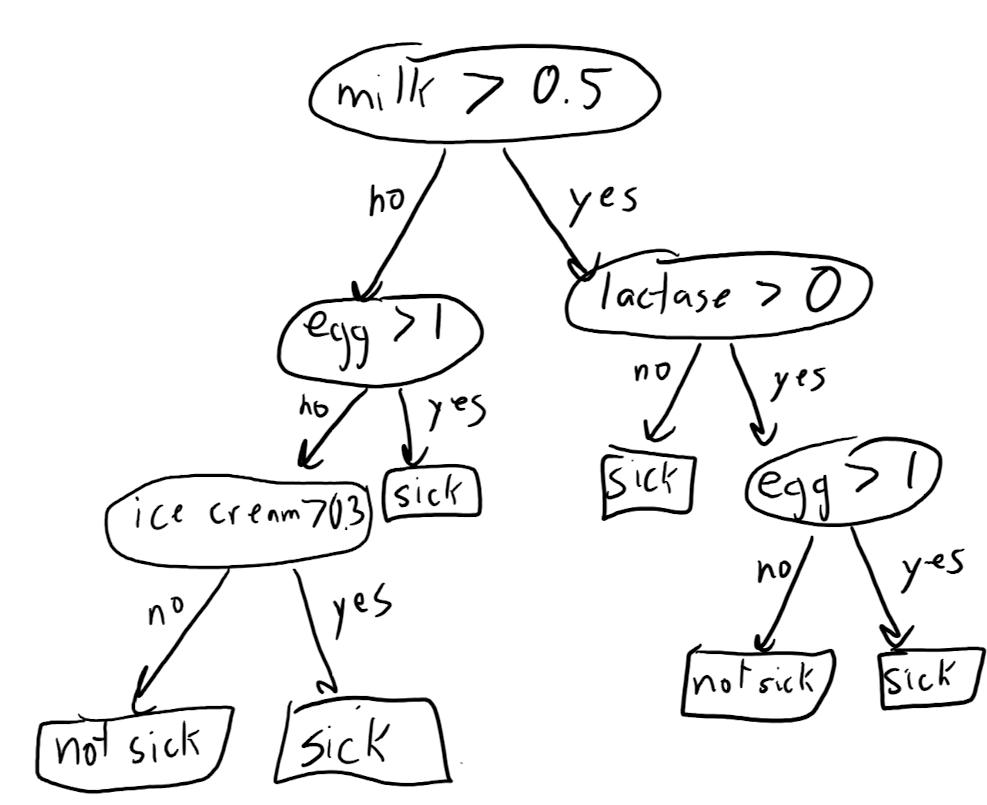 milk > 0.5
no
yes
egg > 1
lactase > 0
no
yes
no
yes
ice cream > 0.3
sick
sick
egg > 1
no
yes
no
yes
not sick
sick
not sick
sick